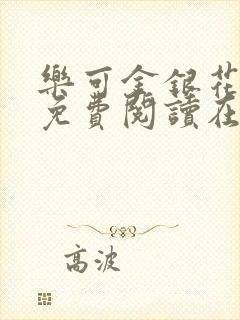 樂可金銀花
免費閱讀在
高波